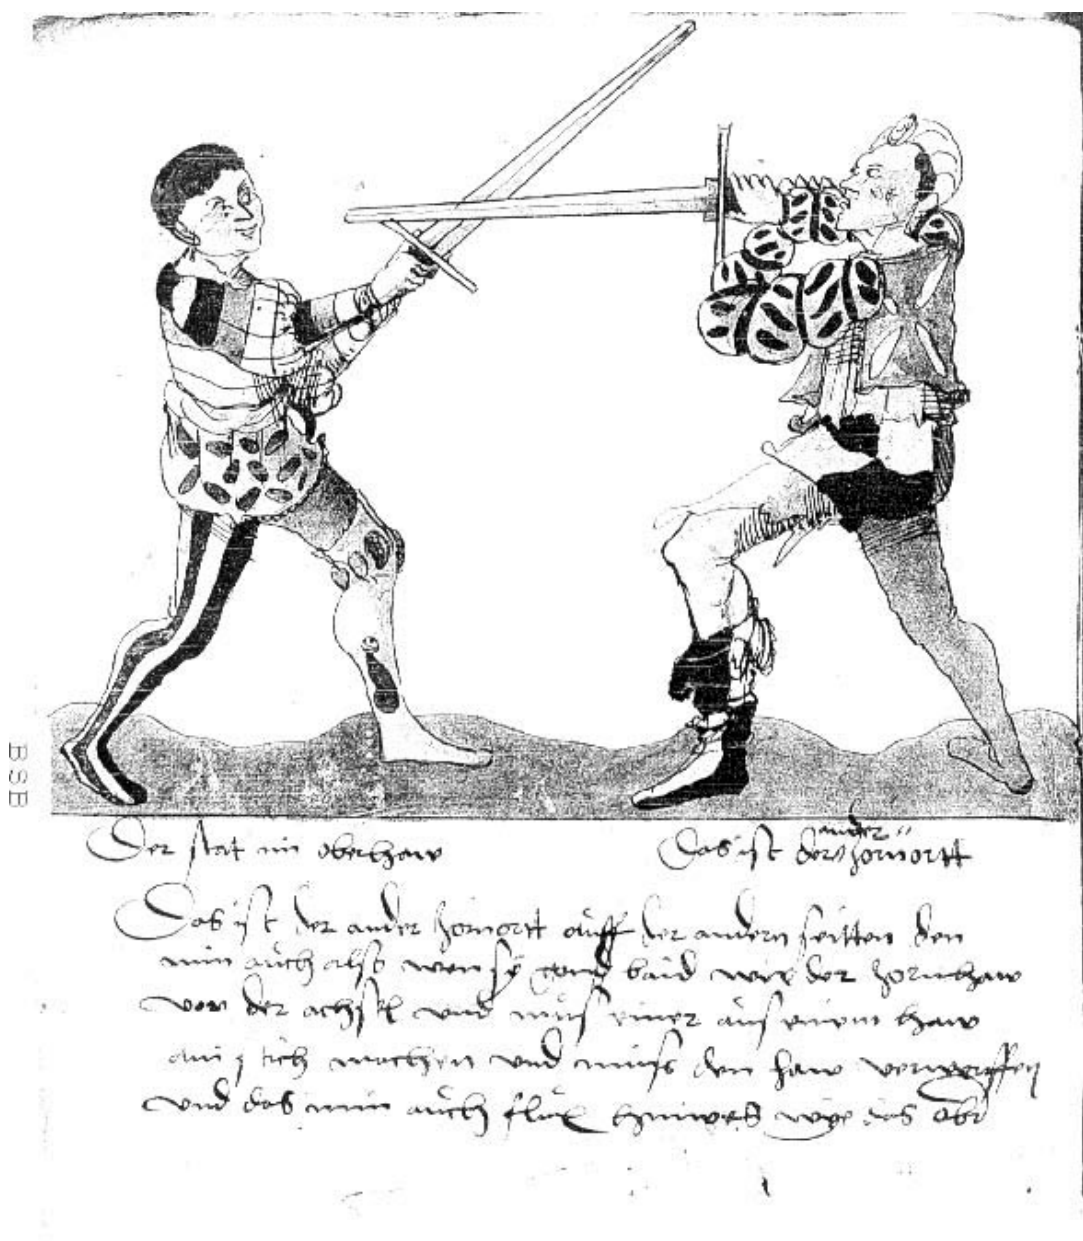 Der stat im oberhaw
Das ist der ander zornortt
Das ist der ander zornortt auff der andern seitten den
nim auch also wen sy send baid wie der zornhaw
von der achsel und mus einer aus einem haw
ain stich machen und muss den haw verwerffen
und das nim auch flux hinweg wye das obr
BSB